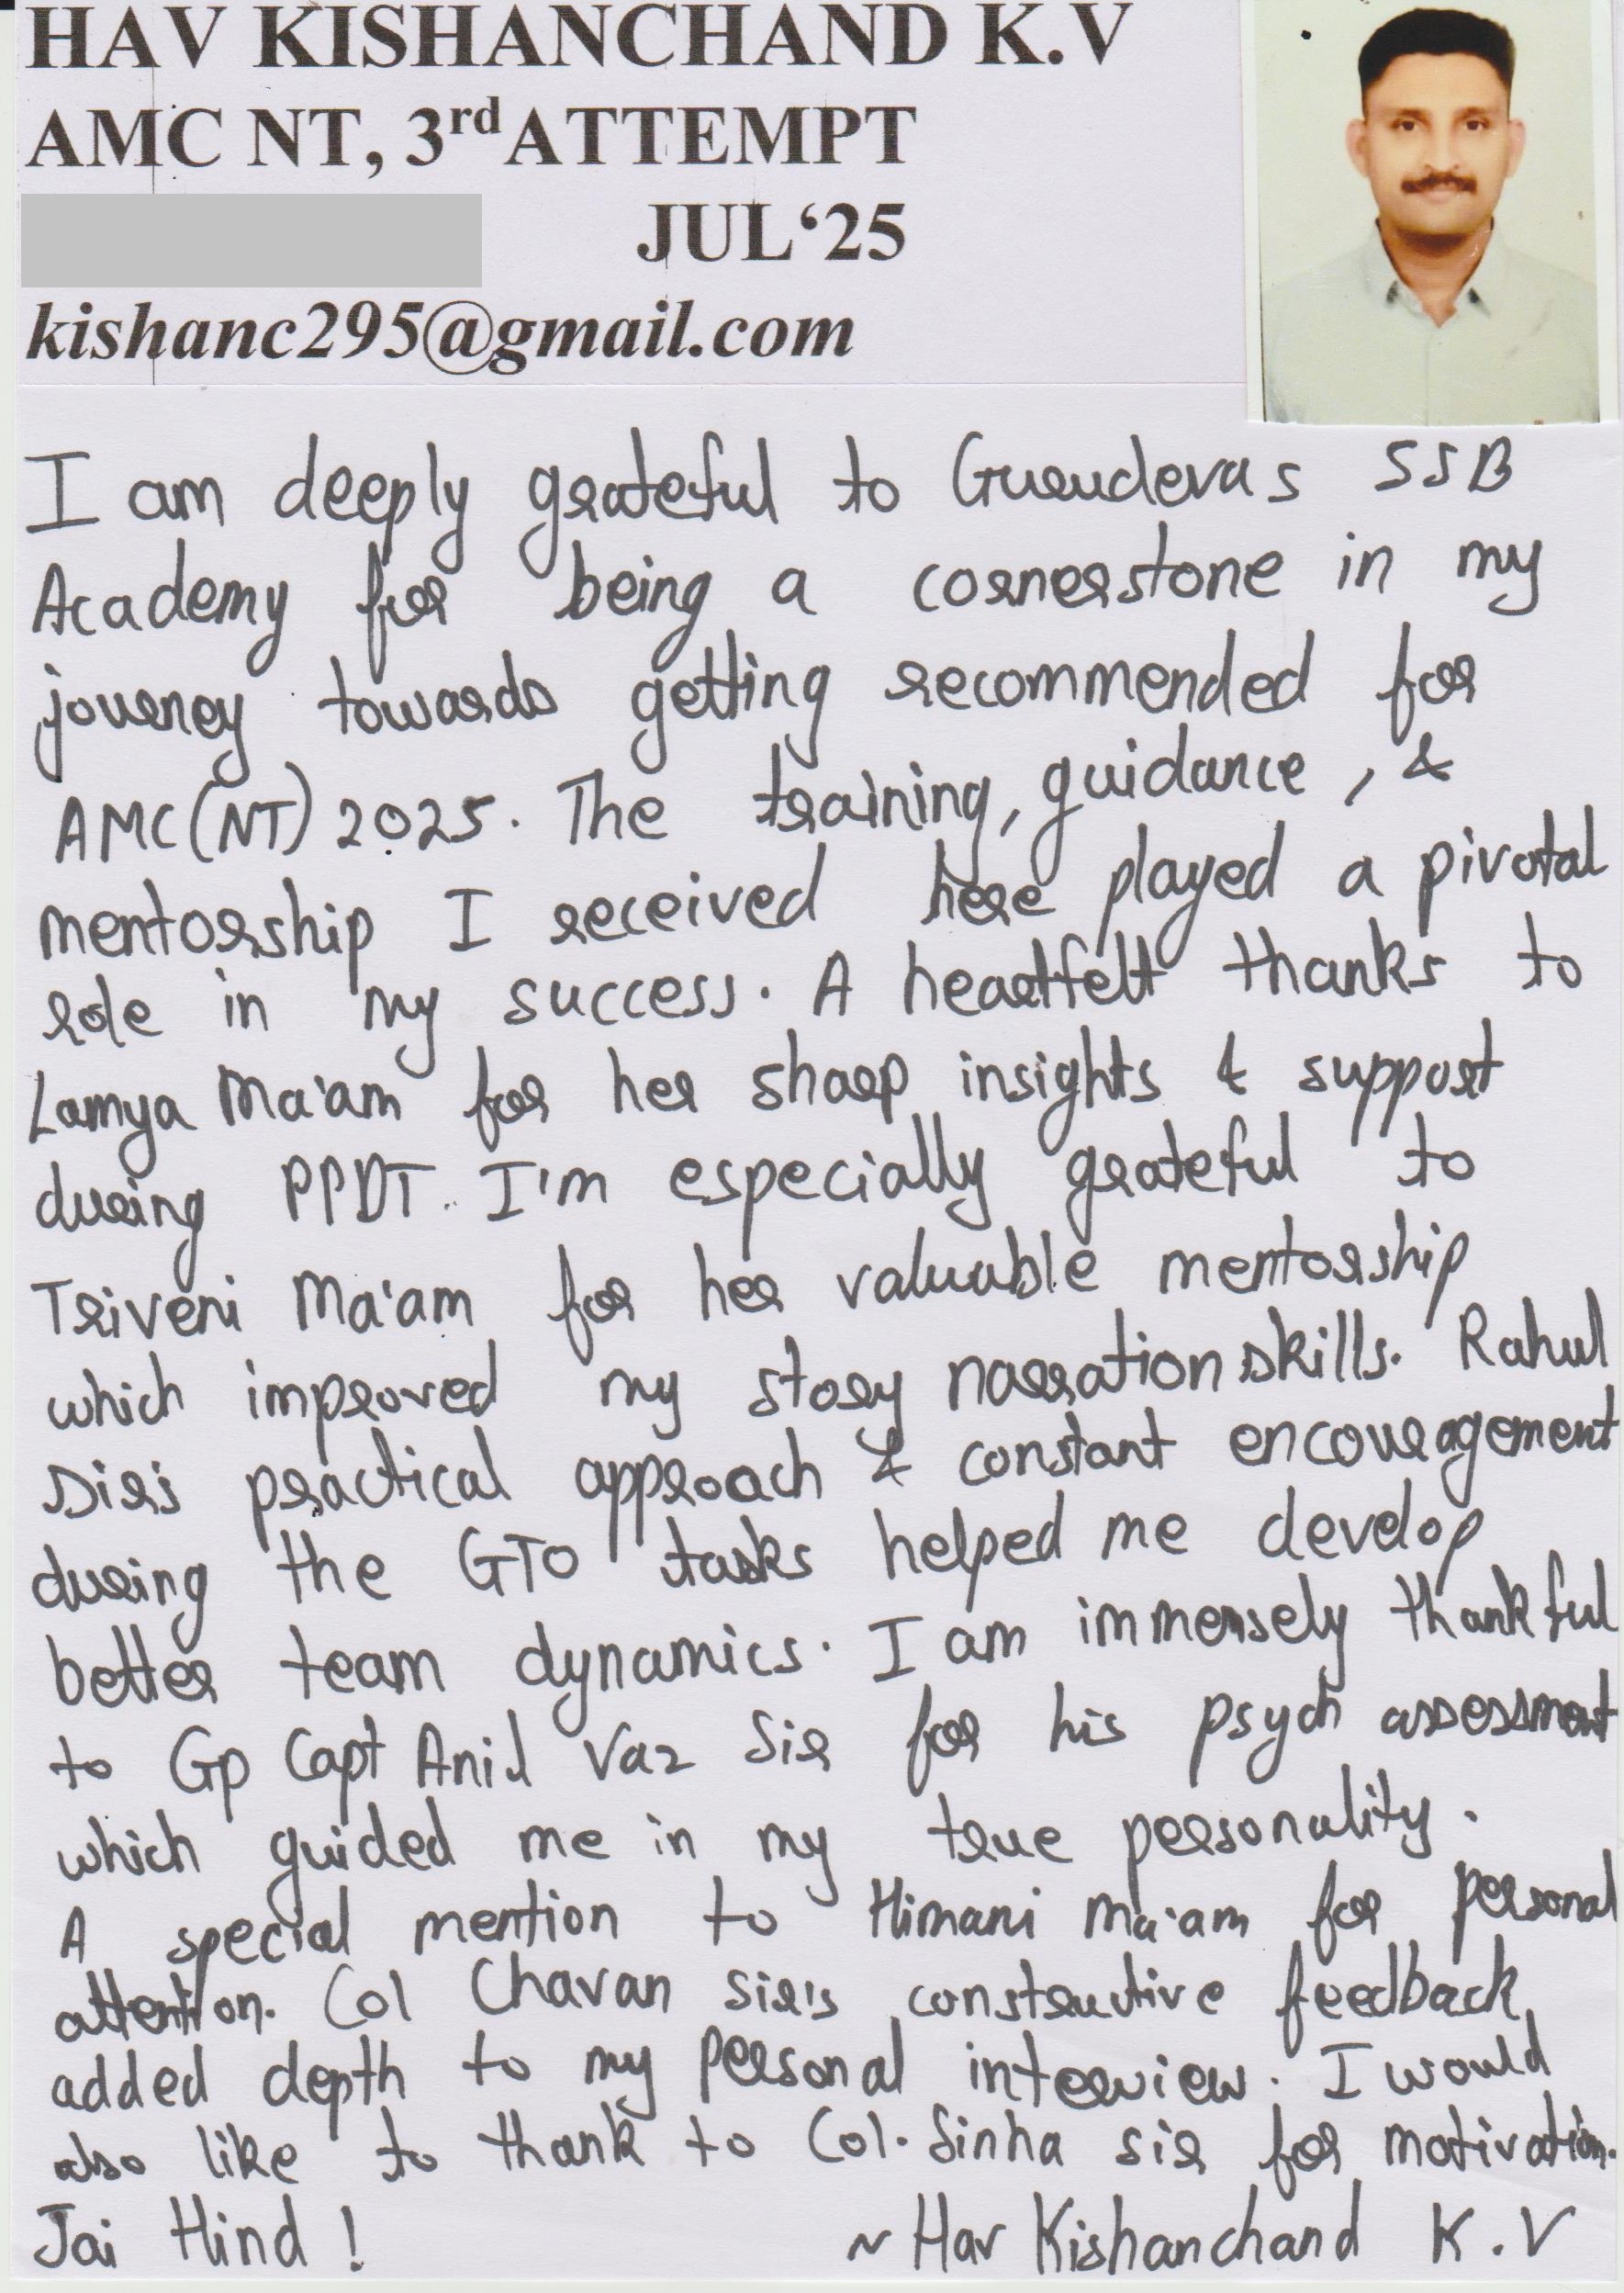 HAV KISHANCHAND K.V
AMC NT, 3rd ATTEMPT
JUL‘25
kishanc295@gmail.com
I am deeply grateful to Gurudevas SSB
Academy for being a cornerstone in my
journey towards getting recommended for
AMC(NT) 2025. The training, guidance, &
mentorship I received here played a pivotal
role in my success. A heartfelt thanks to
Lamya Ma'am for her sharp insights & support
during PPDT. I'm especially grateful to
Triveni Ma'am for her valuable mentorship
which improved my story narration skills. Rahul
Sir's practical approach & constant encouragement
during the GTO tasks helped me develop
better team dynamics. I am immensely thankful
to Gp Capt Anil Vaz Sir for his psych assessment
which guided me in my true personality.
A special mention to Himani Ma'am for personal
attention. Col Chavan Sir's constructive feedback
added depth to my personal interview. I would
also like to thank to Col. Sinha sir for motivation.
Jai Hind ! ~ Hav Kishanchand K.V